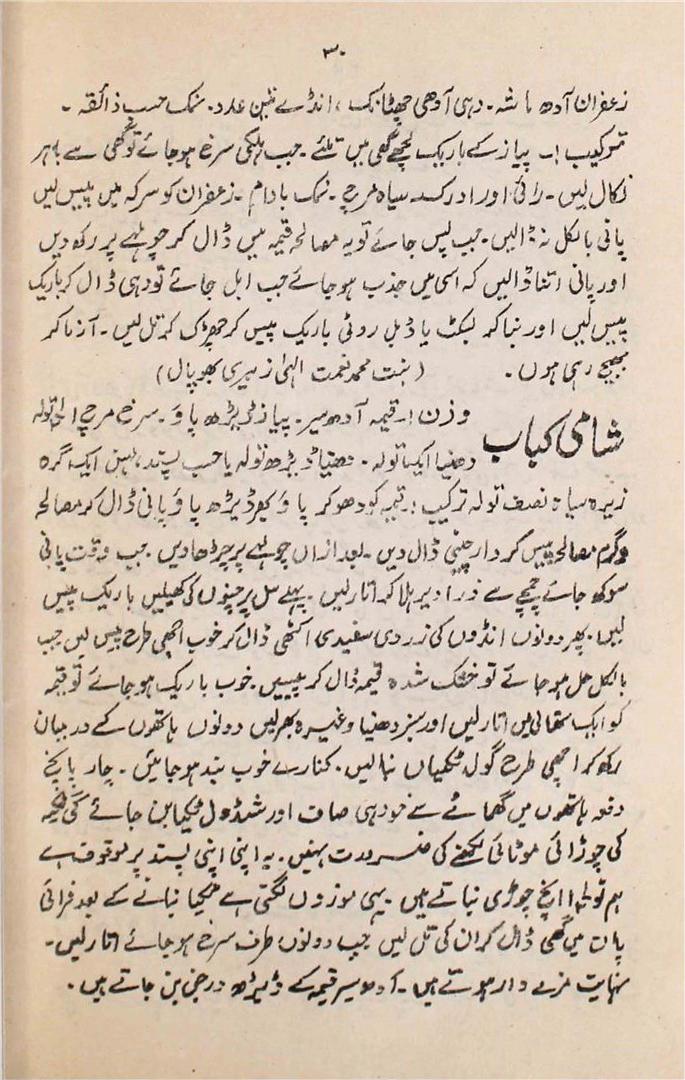 ۳۰
زعفران آدھ ماشہ۔ دہی آدھی چھٹانک، انڈے تین عدد۔ نمک حسب ذائقہ۔
ترکیب :۔ پیاز کے باریک لچھے گھی میں تلئے۔ جب ہلکی سرخ ہوجائے تو گھی سے باہر
نکال لیں۔ رائی اور ادرک سیاہ مرچ۔ نمک بادام۔ زعفران کو سرکہ میں پیس لیں
پانی بالکل نہ ڈالیں۔ جب پس جائے تو یہ مصالحہ قیمہ میں ڈال کر چولہے پر رکھ دیں
اور پانی اتنا ڈالیں کہ اسی میں جذب ہوجائے جب ابل جائے تو دہی ڈال کر باریک
پیس لیں اور بنا کر بسکٹ یا ڈبل روٹی باریک پیس کر چھڑک کر تل لیں۔ آزما کر
بھیج رہی ہوں۔ (بنت محمد نعمت الہیٰ زبیری بھوپال)
شامی کباب
وزن :۔ قیمہ آدھ سیر۔ پیاز ڈیڑھ پاؤ۔ سرخ مرچ تولہ
دھنیا ایک تولہ۔ ڈیڑھ تولہ یا حسب پسند، لہسن ایک گرہ
زیرہ سیاہ نصف تولہ ترکیب :۔ قیمہ کو دھو کر پاؤ بھر ڈیڑھ پاؤ پانی ڈال کر مصالحہ
و گرم مصالحہ پیس کر دارچینی ڈال دیں۔ بعد ازاں چولہے پر چڑھا دیں۔ جب وقت پانی
سوکھ جائے چمچے سے ذرا دیر ہلا کر اتار لیں۔ پہلے سل پر چنوں کی کھیلیں باریک پیس
لیں۔ پھر دونوں انڈوں کی زردی سفیدی اکٹھی ڈال کر خوب اچھی طرح پیس لیں جب
بالکل حل ہوجائے تو خشک شدہ قیمہ ڈال کر پیسیں۔ خوب باریک ہوجائے تو قیمہ
کو ایک تھالی میں اتار لیں اور سبز دھنیا وغیرہ بھر لیں دونوں ہاتھوں کے درمیان
رکھ کر اچھی طرح گول ٹکیاں بنالیں۔ کنارے خوب بند ہوجائیں۔ چار پانچ
دفعہ ہاتھوں میں گھمانے سے خود ہی صاف اور سڈول ٹکیا بن جائے گی ٹکیہ
کی چوڑائی موٹائی لکھنے کی ضرورت نہیں۔ یہ اپنی اپنی پسند پر موقوف ہے
ہم تو انچ چوڑی بناتے ہیں۔ یہی موزوں لگتی ہے ٹکیا بنانے کے بعد فرائی
پان میں گھی ڈال کر ان کی تل لیں جب دونوں طرف سرخ ہوجائے اتار لیں۔
نہایت مزے دار ہوتے ہیں۔ آدھ سیر قیمہ کے ڈیڑھ درجن بن جاتے ہیں۔